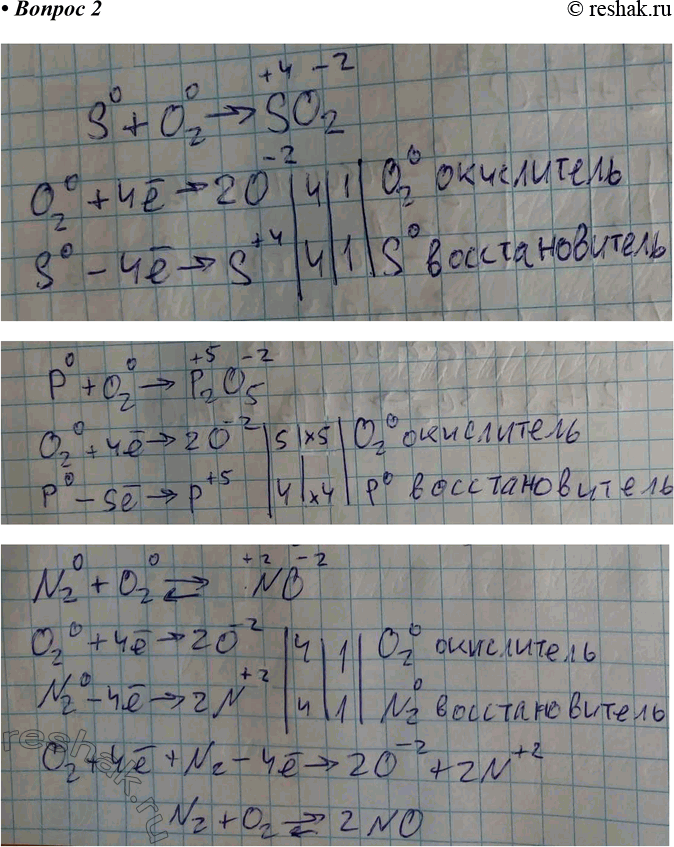 • Вопрос 2
© reshak.ru
S⁰ + O₂⁰ → S⁺⁴O₂⁻²
O₂⁰ + 4ē → 2O⁻² | 4 | 1 | O₂⁰ окислитель
S⁰ – 4ē → S⁺⁴ | 4 | 1 | S⁰ восстановитель
P⁰ + O₂⁰ → P₂⁺⁵O₅⁻²
O₂⁰ + 4ē → 2O⁻² | 5 | ×5 | O₂⁰ окислитель
P⁰ – 5ē → P⁺⁵ | 4 | ×4 | P⁰ восстановитель
N₂⁰ + O₂⁰ ⇄ N⁺²O⁻²
O₂⁰ + 4ē → 2O⁻² | 4 | 1 | O₂⁰ окислитель
N₂⁰ – 4ē → 2N⁺² | 4 | 1 | N₂⁰ восстановитель
O₂ + 4ē + N₂ – 4ē → 2O⁻² + 2N⁺²
N₂ + O₂ ⇄ 2NO
reshak.ru